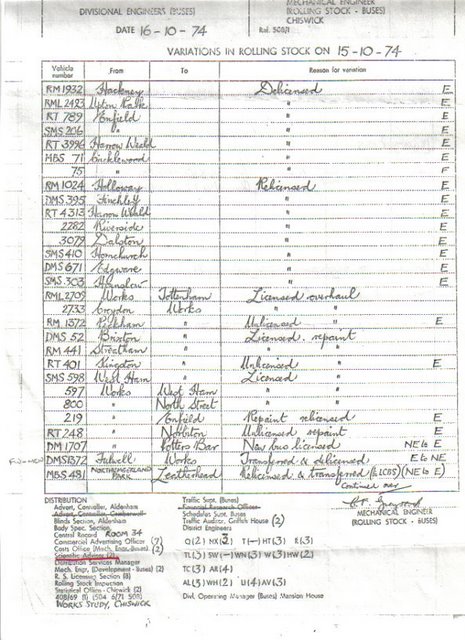 DIVISIONAL ENGINEERS (BUSES)
MECHANICAL ENGINEER
(ROLLING STOCK - BUSES)
CHISWICK
DATE 16-10-74
Ref. 508/1
VARIATIONS IN ROLLING STOCK ON 15-10-74
Vehicle number From To Reason for variation
RM 1932 Hackney Delicensed E
RML 2423 Upton Park " E
RT 789 Enfield " E
SMS 206 " " E
RT 3996 Harrow Weald " E
MBS 71 Cricklewood " E
75 " " E
RM 1024 Holloway Relicensed E
DMS 395 Finchley " E
RT 4313 Harrow Weald " E
2282 Riverside " E
3079 Dalston " E
SMS 410 Hornchurch " E
DMS 671 Edgware " E
SMS 303 Hounslow " E
RML 2709 Works Tottenham Licensed overhaul
2733 Croydon Works " "
RM 1372 Peckham " Unlicensed " E
DMS 52 Brixton " Licensed repaint
RM 441 Streatham " " "
RT 401 Kingston " Unlicensed " E
SMS 598 West Ham " Licensed "
597 Works West Ham " "
800 " North Street " "
219 " Enfield Repaint relicensed E
RT 248 " Norbiton Unlicensed repaint E
DM 1707 " Potters Bar New bus licensed NE to E
DMS 1372 Fulwell Works Transferred & delicensed E to NE
MBS 481 NORTHUMBERLAND PARK Leatherhead Relicensed & transferred (to LCBS) (NE to E)
Continued over
MECHANICAL ENGINEER
(ROLLING STOCK - BUSES)
DISTRIBUTION
Advert. Controller, Aldenham
Blinds Section, Aldenham
Body Spec. Section
Central Record ROOM 34
Commercial Advertising Officer (7)
Costs Office (Mech. Engr. Buses) (2)
Scientific Adviser (2)
Distribution Services Manager
Mech. Engr. (Development - Buses) (2)
R. S. Licensing Section (8)
Rolling Stock Inspection
Statistical Office - Chiswick (2)
WORKS STUDY, CHISWICK
Traffic Supt. (Buses)
Financial Research Officer
Schedules Supt. Buses
Traffic Auditor, Griffith House (2)
District Engineers
Q (2) NX (3) T (-) HT (3) E (3)
TL (3) SW (-) WN (3) W (3) HW (2)
TC (3) AR (4)
AL (3) WH (2) U (4) AV (3)
Divl. Operating Manager (Buses) Mansion House